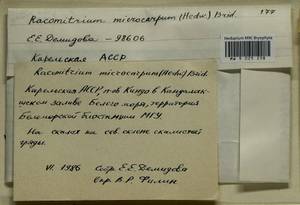 Racomitrium microcarpum (Hedw.) Brid.
177
Е.Е. Демидова – 98606
Карельская АССР
Herbarium MW, Bryophyta
Racomitrium microcarpum (Hedw.) Brid.
Карельская АССР, п-ов Киндо в Кандалак-
шском заливе Белого моря, территория
Беломорской биостанции МГУ.
На скалах на сев. склоне скалистой
гряды.
VI. 1986 Собр. Е.Е. Демидова
Опр. В.Р. Филин